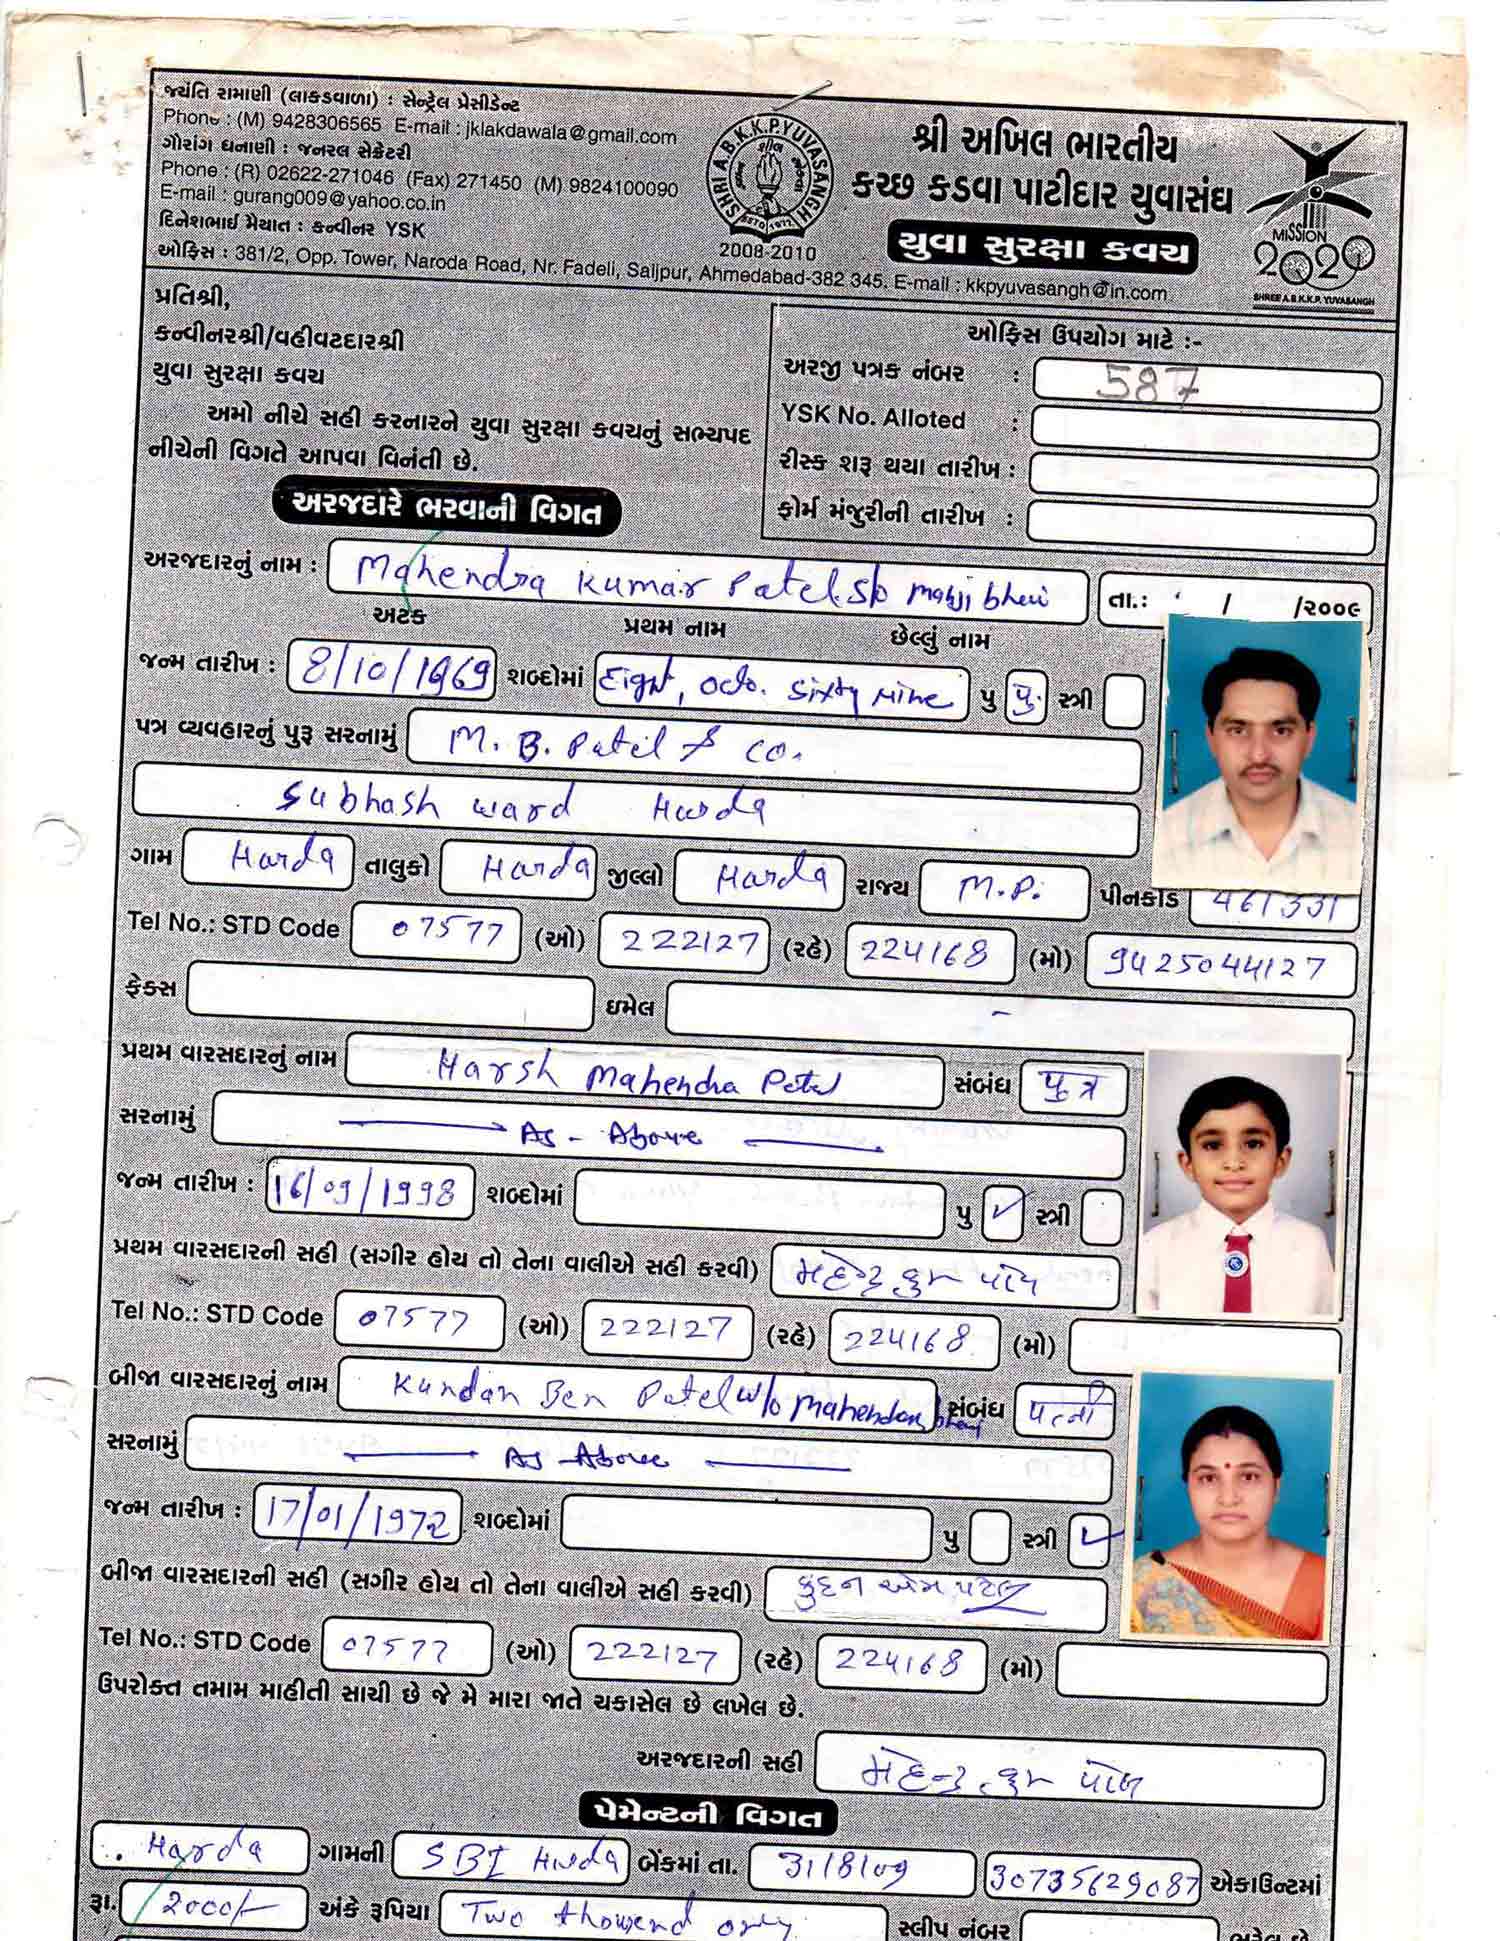 જયંતિ રામાણી (લાકડાવાળા) : સેન્ટ્રેલ પ્રેસીડેન્ટ
Phone : (M) 9428306565 E-mail : jklakdawala@gmail.com
ગૌરાંગ ધનાણી : જનરલ સેક્રેટરી
Phone : (R) 02622-271046 (Fax) 271450 (M) 9824100090
E-mail : gurang009@yahoo.co.in
દિનેશભાઈ મેયાત : કન્વીનર YSK
ઓફિસ : 381/2, Opp. Tower, Naroda Road, Nr. Fadeli, Saijpur, Ahmedabad-382 345. E-mail : kkpyuvasangh@in.com
SHRI A.B.K.K.P. YUVASANGH
ESTD 1977
2008-2010
શ્રી અખિલ ભારતીય
કચ્છ કડવા પાટીદાર યુવાસંઘ
યુવા સુરક્ષા કવચ
MISSION
2020
SHREE A.B.K.K.P. YUVASANGH
પ્રતિશ્રી,
કન્વીનરશ્રી/વહીવટદારશ્રી
યુવા સુરક્ષા કવચ
અમો નીચે સહી કરનારને યુવા સુરક્ષા કવચનું સભ્યપદ
નીચેની વિગતે આપવા વિનંતી છે.
ઓફિસ ઉપયોગ માટે :-
અરજી પત્રક નંબર : 587
YSK No. Alloted :
રીસ્ક શરૂ થયા તારીખ :
ફોર્મ મંજુરીની તારીખ :
અરજદારે ભરવાની વિગત
અરજદારનું નામ : Mahendra Kumar Patel S/o Manji bhai તા.: / /૨૦૦૯
અટક પ્રથમ નામ છેલ્લું નામ
જન્મ તારીખ : 8/10/1969 શબ્દોમાં Eight, Octo. Sixty Nine પુ પુ. સ્ત્રી
પત્ર વ્યવહારનું પુરૂ સરનામું M. B. Patel & Co.
Subhash ward Harda
ગામ Harda તાલુકો Harda જીલ્લો Harda રાજ્ય M.P. પીનકોડ 461331
Tel No.: STD Code 07577 (ઓ) 222127 (રહે) 224168 (મો) 9425044127
ફેક્સ ઇમેલ -
પ્રથમ વારસદારનું નામ Harsh Mahendra Patel સંબંધ પુત્ર
સરનામું As - Above
જન્મ તારીખ : 16/09/1998 શબ્દોમાં પુ ✓ સ્ત્રી
પ્રથમ વારસદારની સહી (સગીર હોય તો તેના વાલીએ સહી કરવી)
Tel No.: STD Code 07577 (ઓ) 222127 (રહે) 224168 (મો)
બીજા વારસદારનું નામ Kundan Ben Patel w/o Mahendra bhai સંબંધ પત્ની
સરનામું As Above
જન્મ તારીખ : 17/01/1972 શબ્દોમાં પુ સ્ત્રી ✓
બીજા વારસદારની સહી (સગીર હોય તો તેના વાલીએ સહી કરવી) કુંદન એમ પટેલ
Tel No.: STD Code 07577 (ઓ) 222127 (રહે) 224168 (મો)
ઉપરોક્ત તમામ માહીતી સાચી છે જે મે મારા જાતે ચકાસેલ છે લખેલ છે.
અરજદારની સહી
પેમેન્ટની વિગત
Harda ગામની SBI Harda બેંકમાં તા. 31/8/09 30735629087 એકાઉન્ટમાં
રૂા. 2000/- અંકે રૂપિયા Two thousend only સ્લીપ નંબર ભરેલ છે